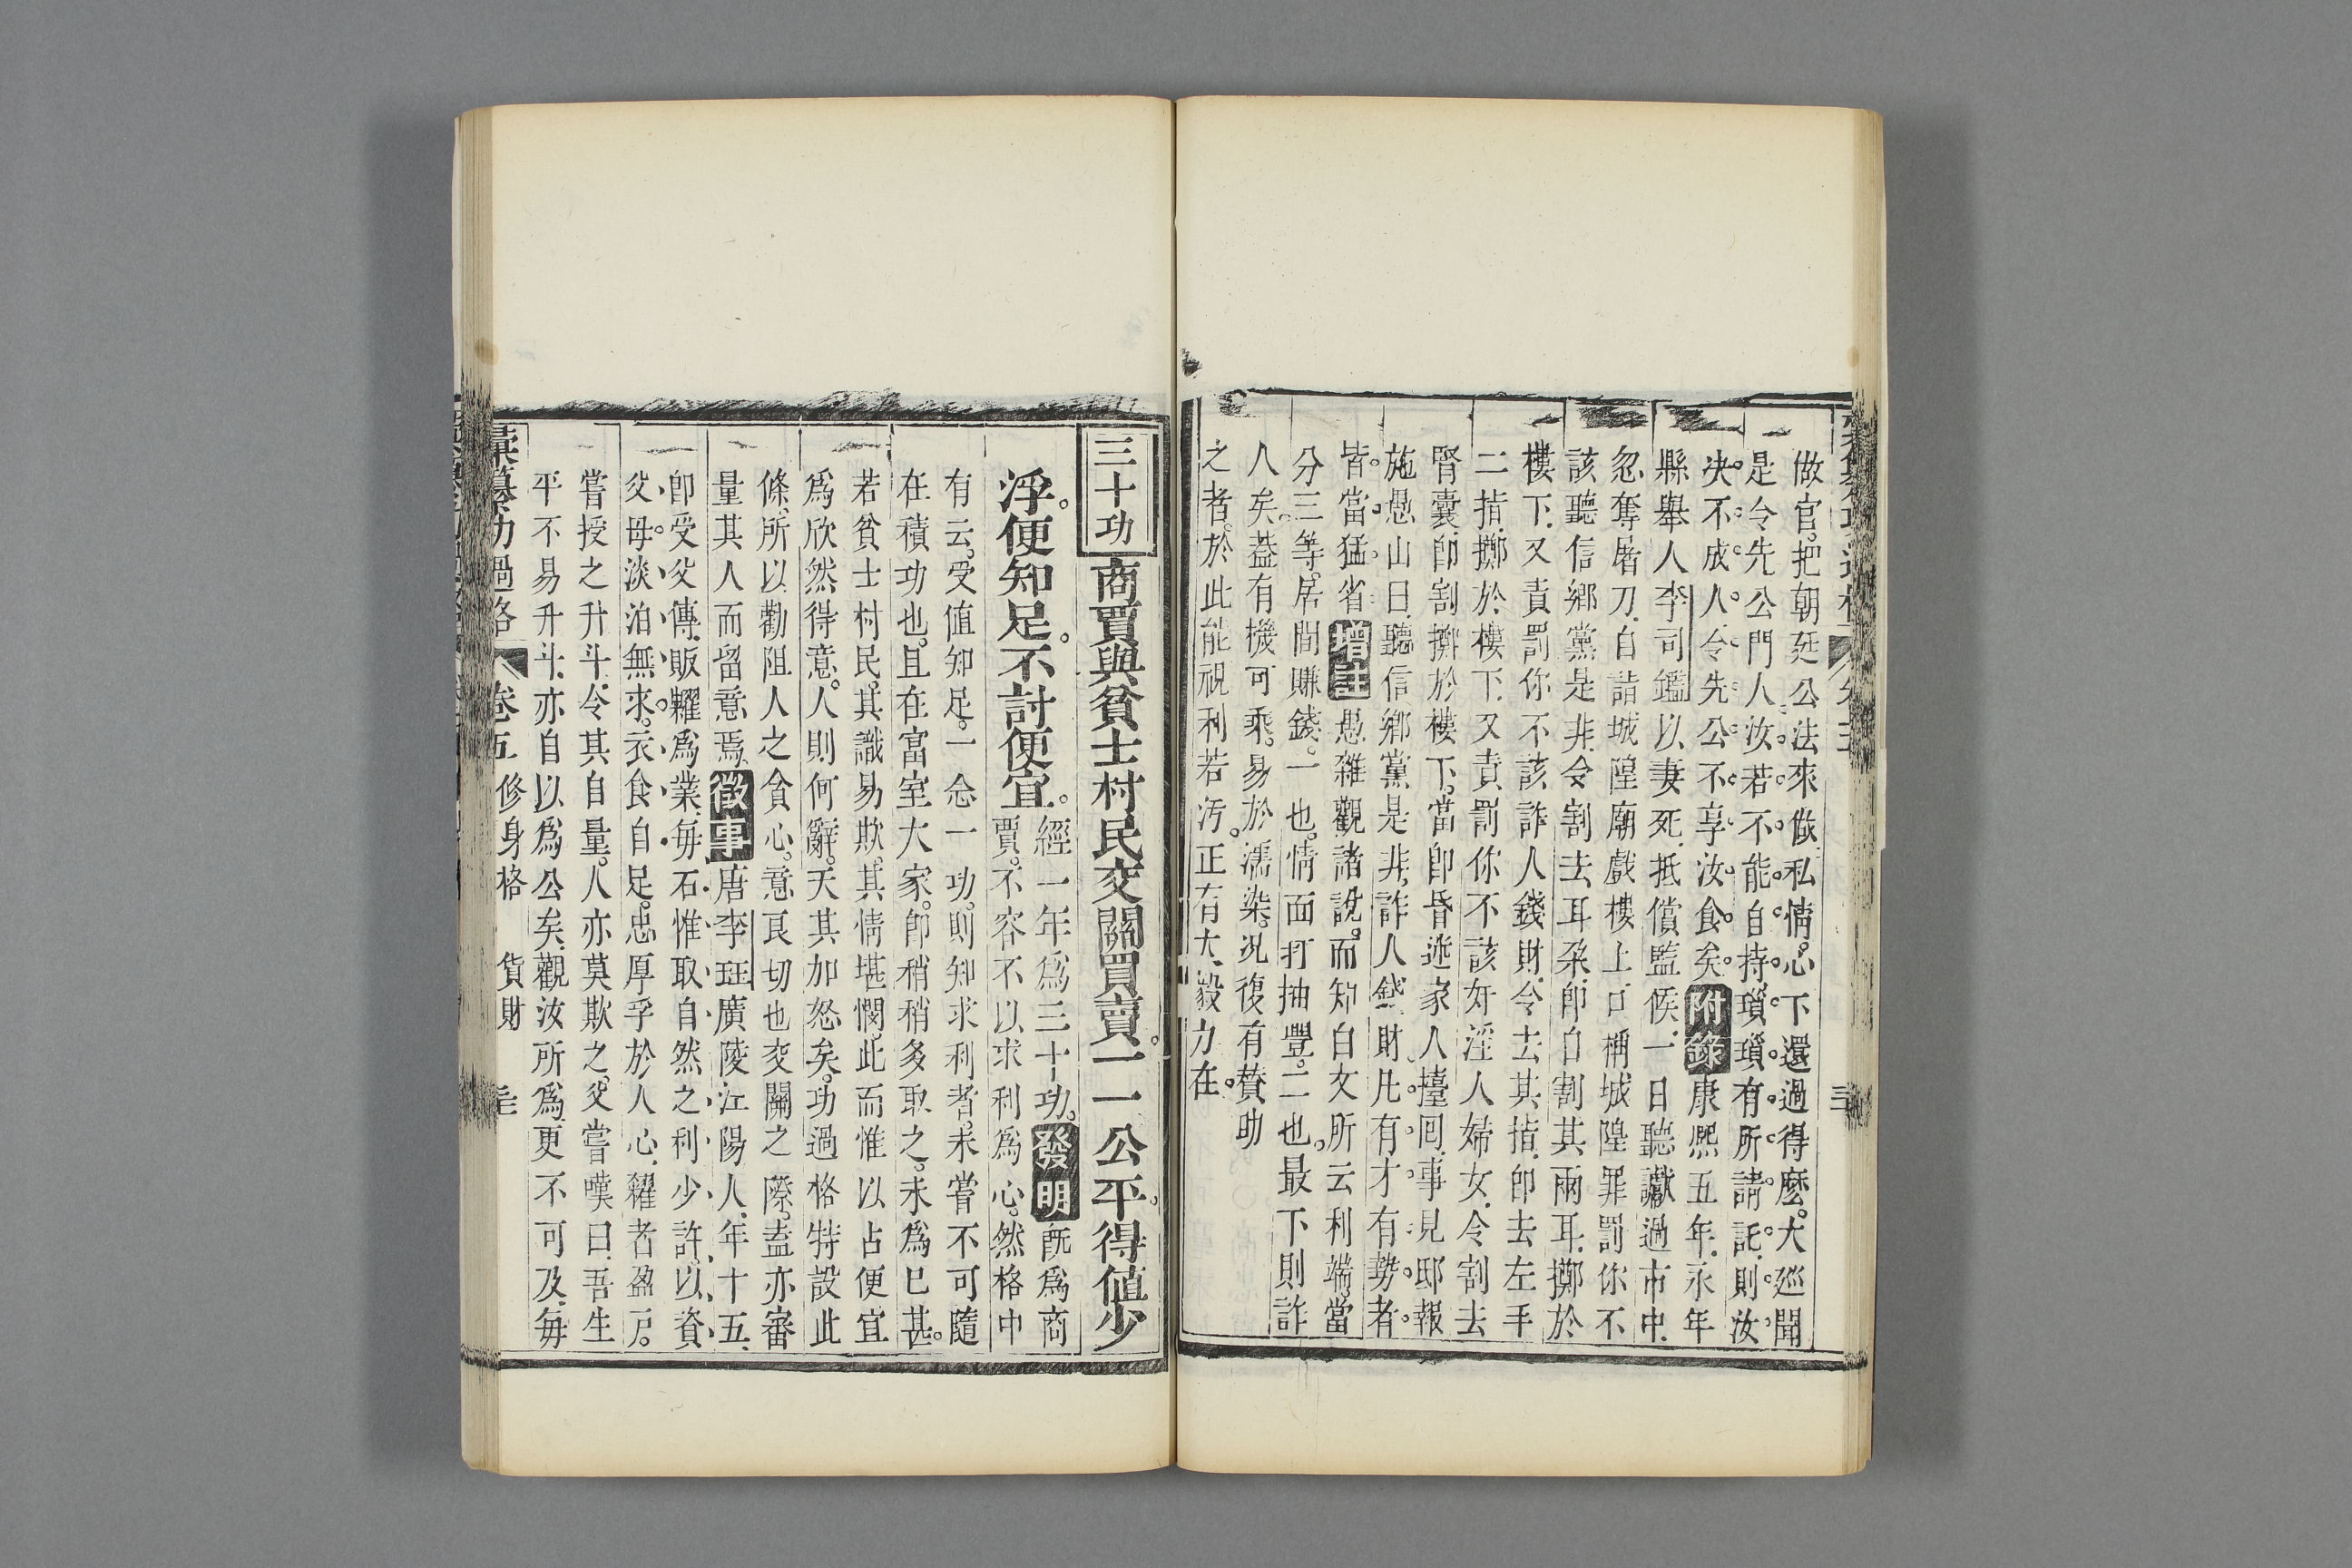 做官。把朝廷公法來做私情。心下還過得麽。大巡聞
是令先公門人。汝若不能自持。瑣瑣有所請託。則汝
决不成人。令先公不享汝食矣。附錄康熙五年。永年
縣舉人李司鑑以妻死。抵償監候。一日聽讞過市中。
忽奪屠刀。自詣城隍廟戲樓上。口稱城隍罪罰你不
該聽信鄉黨是非。令割去耳朶。卽自割其兩耳。擲於
樓下。又責罰你不該詐人錢財。令去其指。卽去左手
二指。擲於樓下。又責罰你不該奸淫人婦女。令割去
腎囊。卽割擲於樓下。當卽昏迷。家人擡囘。事見邸報
施愚山曰。聽信鄉黨是非。詐人錢財。凡有才。有勢者。
皆當猛省。增註愚雜觀諸說。而知白文所云利端。當
分三等。居間賺錢。一也。情面打抽豐。二也。最下則詐
人矣。葢有機可乘。易於濡染。况復有贊助
之者。於此能視利若汚。正有大毅力在。
三十功 商賈與貧士村民交關買賣。一一公平。得値少
浮。便知足。不討便宜。經一年爲三十功。發明旣爲商
賈。不容不以求利爲心。然格中
有云。受値知足。一念一功。則知求利者。未嘗不可隨
在積功也。且在富室大家。卽稍稍多取之。未爲已甚。
若貧士村民。其識易欺。其情堪憫。此而惟以占便宜
爲欣然得意。人則何辭。天其加怒矣。功過格特設此
條。所以勸阻人之貪心。意良切也。交關之際。盍亦審
量其人而留意焉。徵事唐李珏廣陵江陽人。年十五。
卽受父傳。販糴爲業。每石惟取自然之利少許。以資
父母。淡泊無求。衣食自足。忠厚孚於人心。糴者盈戶。
嘗授之升斗。令其自量。人亦莫欺之。父嘗嘆曰。吾生
平不易升斗。亦自以爲公矣。觀汝所爲。更不可及。每
彙纂功過格 卷五 修身格 貨財